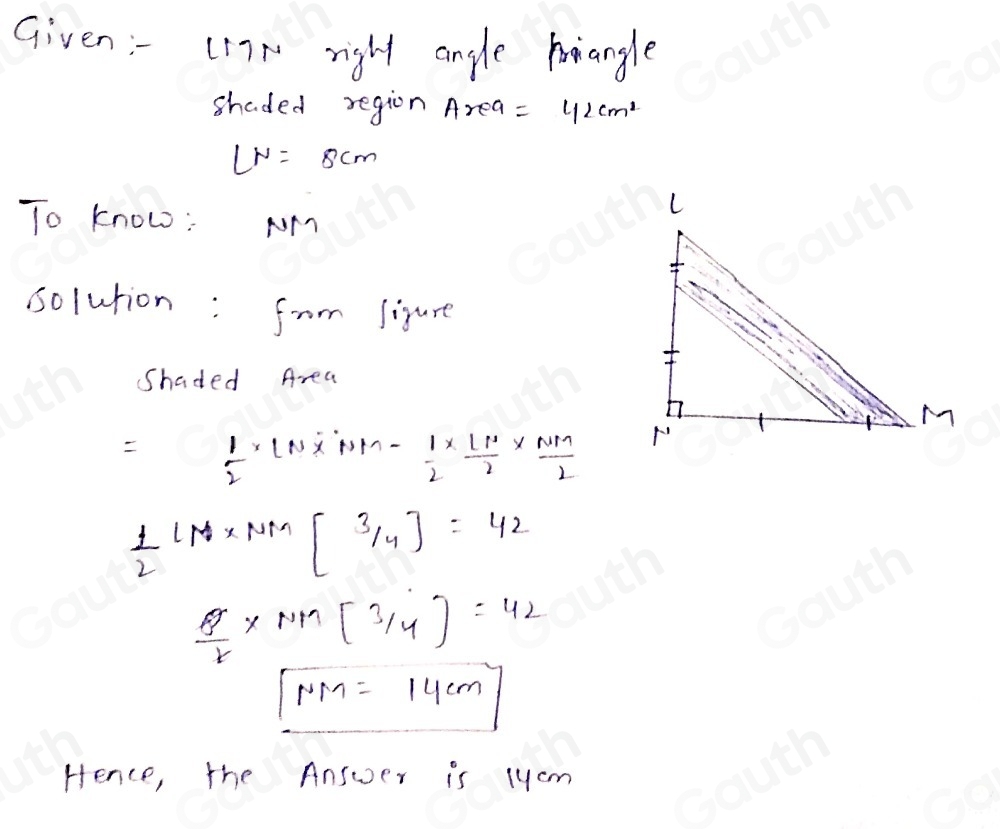 Given :- LMN right angle triangle
shaded region Area = 42cm²
LN = 8cm
To know : NM
Solution : from figure
Shaded Area
= 1/2 × LN × NM - 1/2 × LN/2 × NM/2
1/2 LN × NM [ 3/4 ] = 42
8/2 × NM [ 3/4 ] = 42
NM = 14cm
Hence, the Answer is 14cm
L
N
M
Gauth